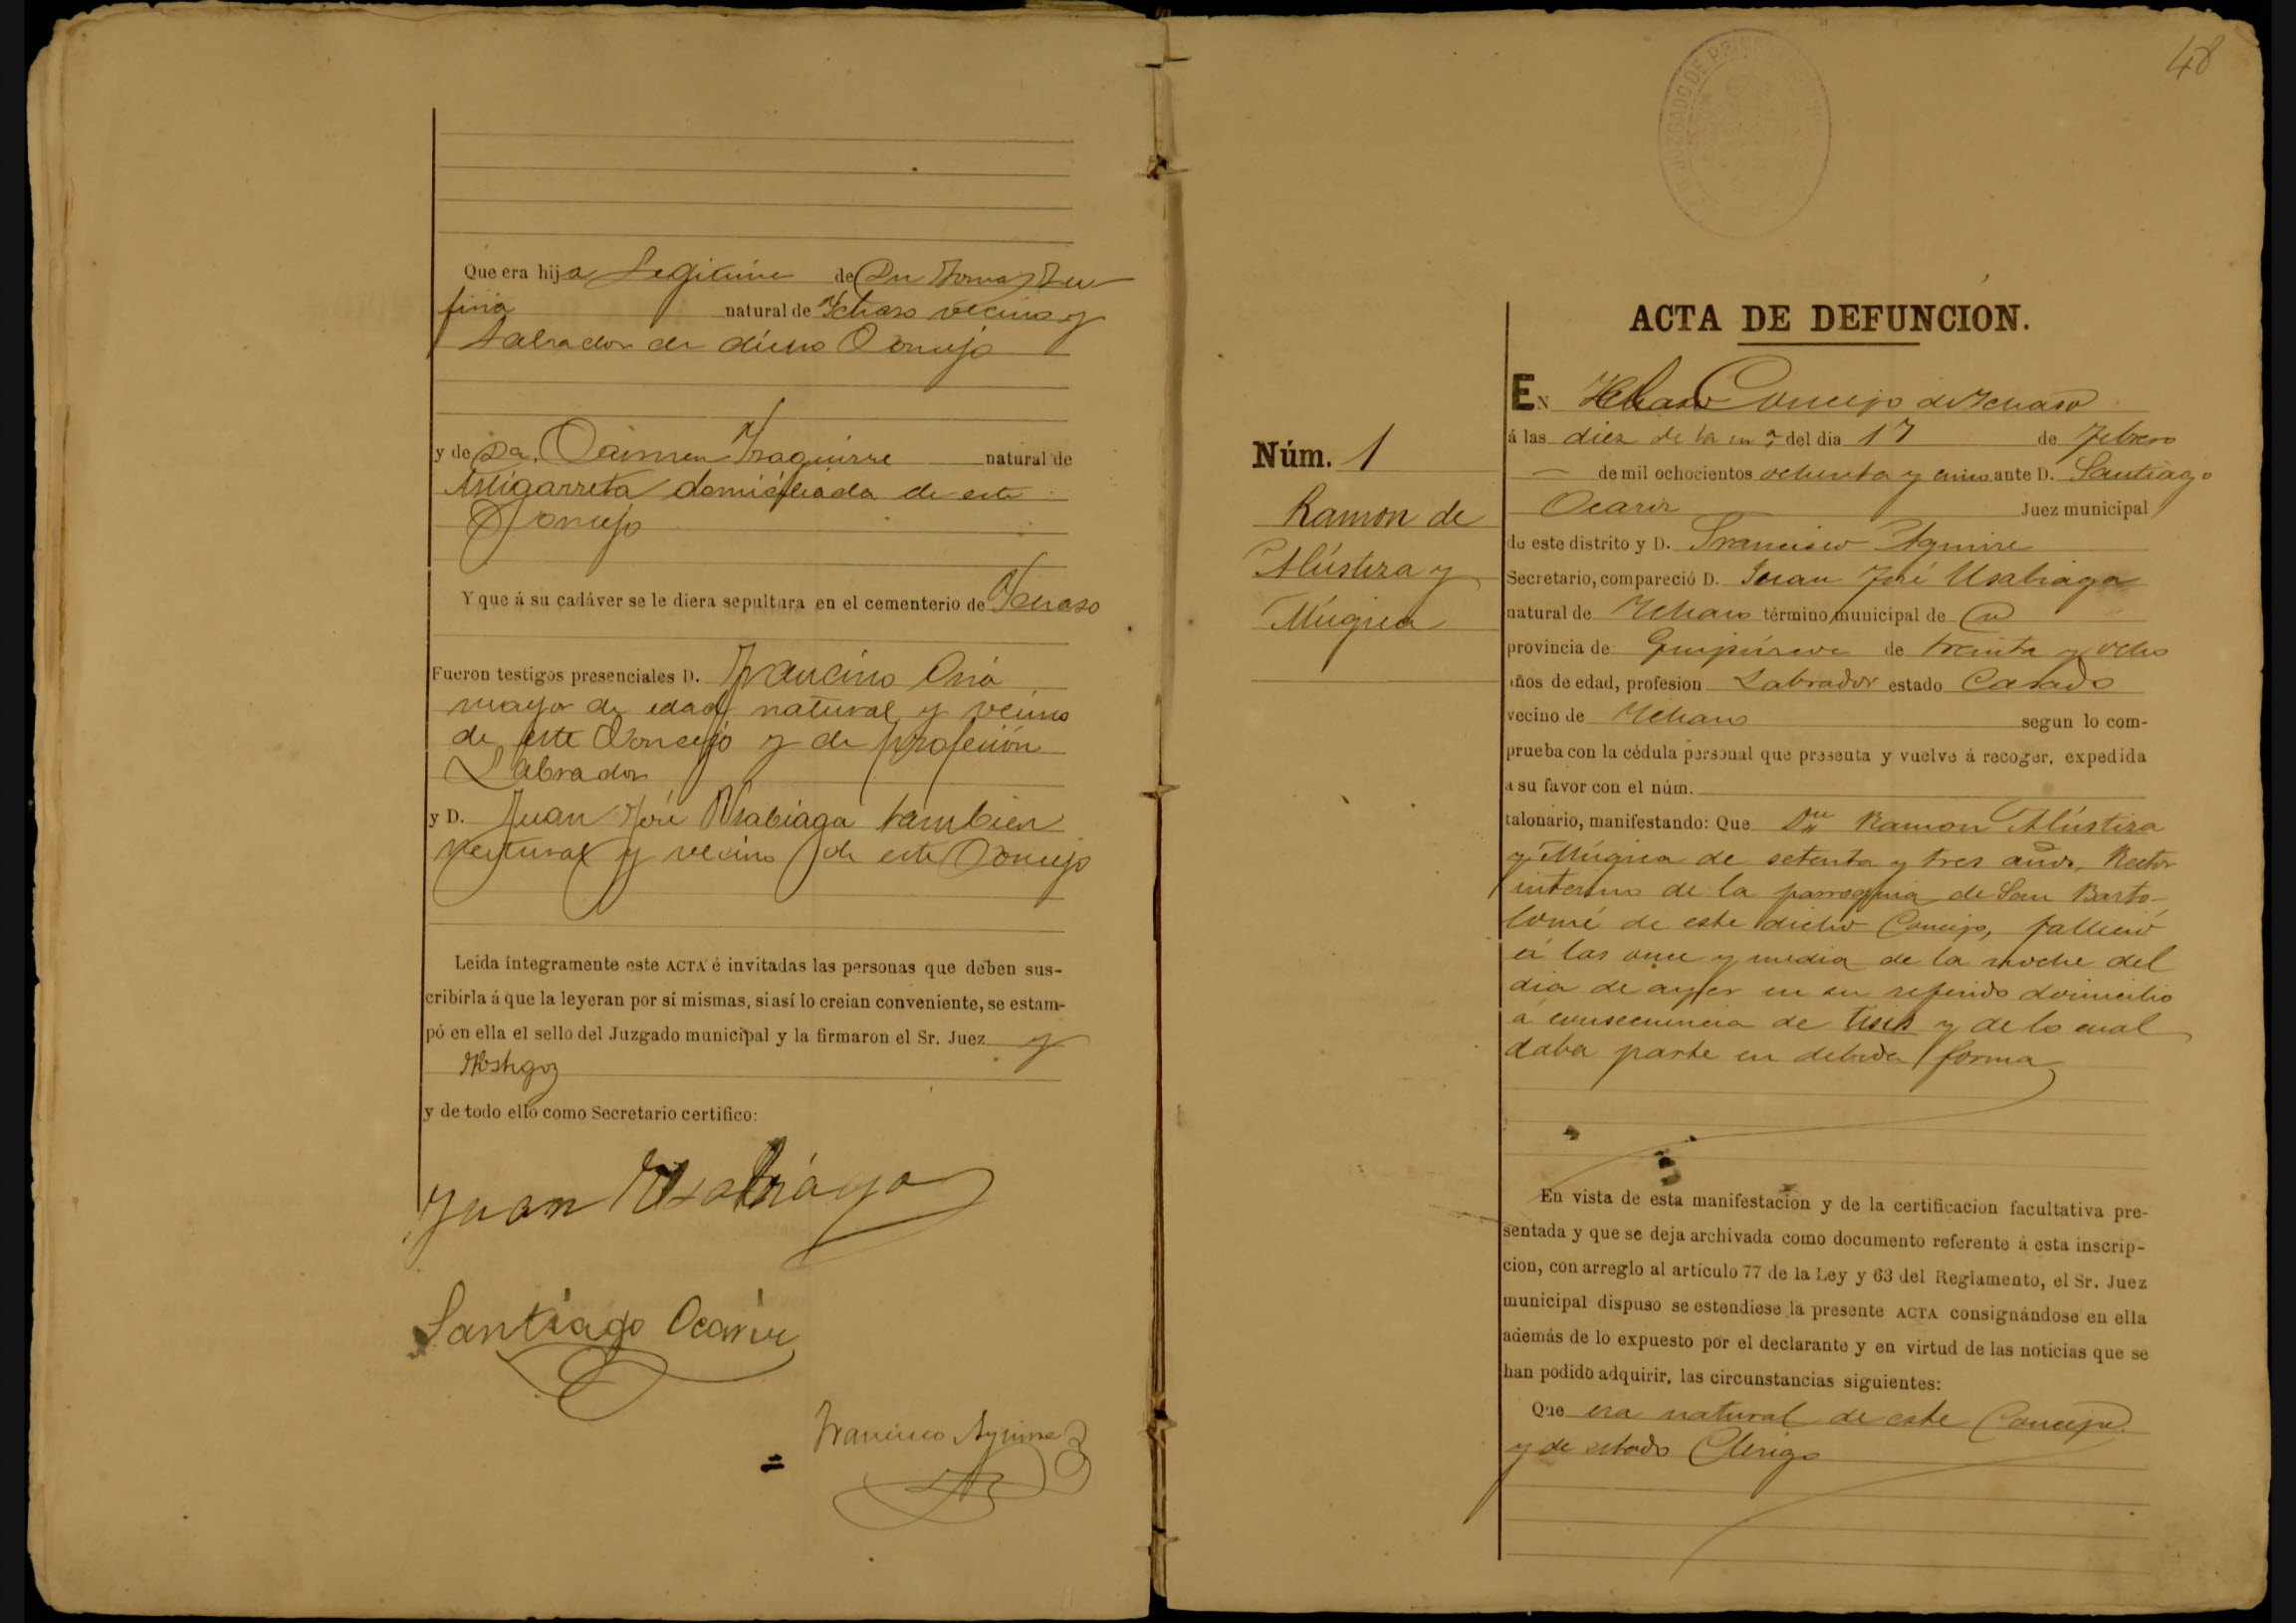 Que era hija Legitima de Dn Tomas Zu
firia natural de Ychaso vecino y
Labrador de dicho Concejo
y de Da. Carmen Yraguirre natural de
Astigarreta domiciliada de este
Concejo
Y que á su cadáver se le diera sepultura en el cementerio de Ychaso
Fueron testigos presenciales D. Francisco Oria
mayor de edad, natural y vecino
de este Concejo y de profesión
Labrador
y D. Juan José Usabiaga tambien
natural y vecino de este Concejo
Leida íntegramente este ACTA é invitadas las personas que deben sus-
cribirla á que la leyeran por sí mismas, si así lo creian conveniente, se estam-
pó en ella el sello del Juzgado municipal y la firmaron el Sr. Juez y
Testigos
y de todo ello como Secretario certifico:
Juan Usabiaga
Santiago Ocariz
Francisco Aguirre
48
JUZGADO DE
ACTA DE DEFUNCION.
EN Ychaso Concejo de Ychaso
á las diez de la mª del dia 17 de Febrero
de mil ochocientos ochenta y cinco ante D. Santiago
Ocariz Juez municipal
de este distrito y D. Francisco Aguirre
Secretario, compareció D. Juan José Usabiaga
natural de Ychaso término municipal de
provincia de Guipúzcoa de treinta y ocho
años de edad, profesion Labrador estado Casado
vecino de Ychaso segun lo com-
prueba con la cédula personal que presenta y vuelve á recoger, expedida
a su favor con el núm.
talonario, manifestando: Que Dn Ramon Alústiza
y Múgica de setenta y tres años, Rector
interino de la parroquia de San Barto-
lomé de este dicho Concejo, falleció
á las once y media de la noche del
dia de ayer en su referido domicilio
á consecuencia de tisis y de lo cual
daba parte en debida forma
En vista de esta manifestacion y de la certificacion facultativa pre-
sentada y que se deja archivada como documento referente á esta inscrip-
cion, con arreglo al artículo 77 de la Ley y 63 del Reglamento, el Sr. Juez
municipal dispuso se estendiese la presente ACTA consignándose en ella
además de lo expuesto por el declarante y en virtud de las noticias que se
han podido adquirir, las circunstancias siguientes:
Que era natural de este Concejo
y de estado Clerigo
Núm. 1
Ramon de
Alústiza y
Múgica